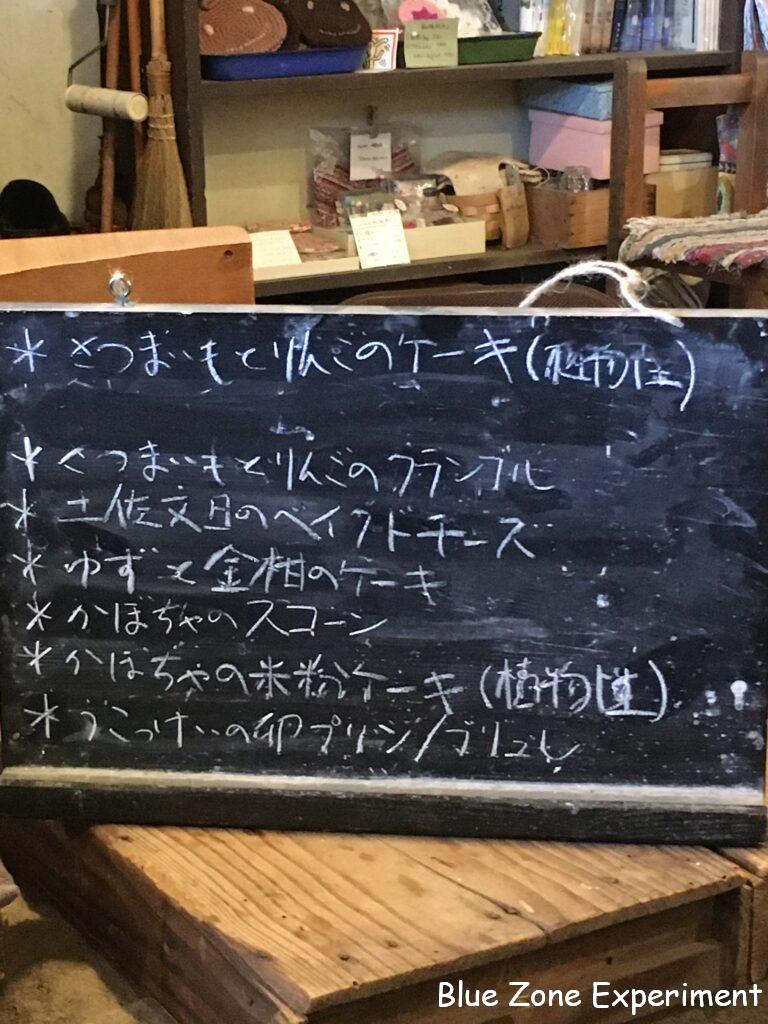 * さつまいもとりんごのケーキ(植物性)
* さつまいもとりんごのクランブル
* 土佐文旦のベイクドチーズ
* ゆずと金柑のケーキ
* かぼちゃのスコーン
* かぼちゃの米粉ケーキ(植物性)
* うこっけいの卵プリン/ブリュレ
Blue Zone Experiment